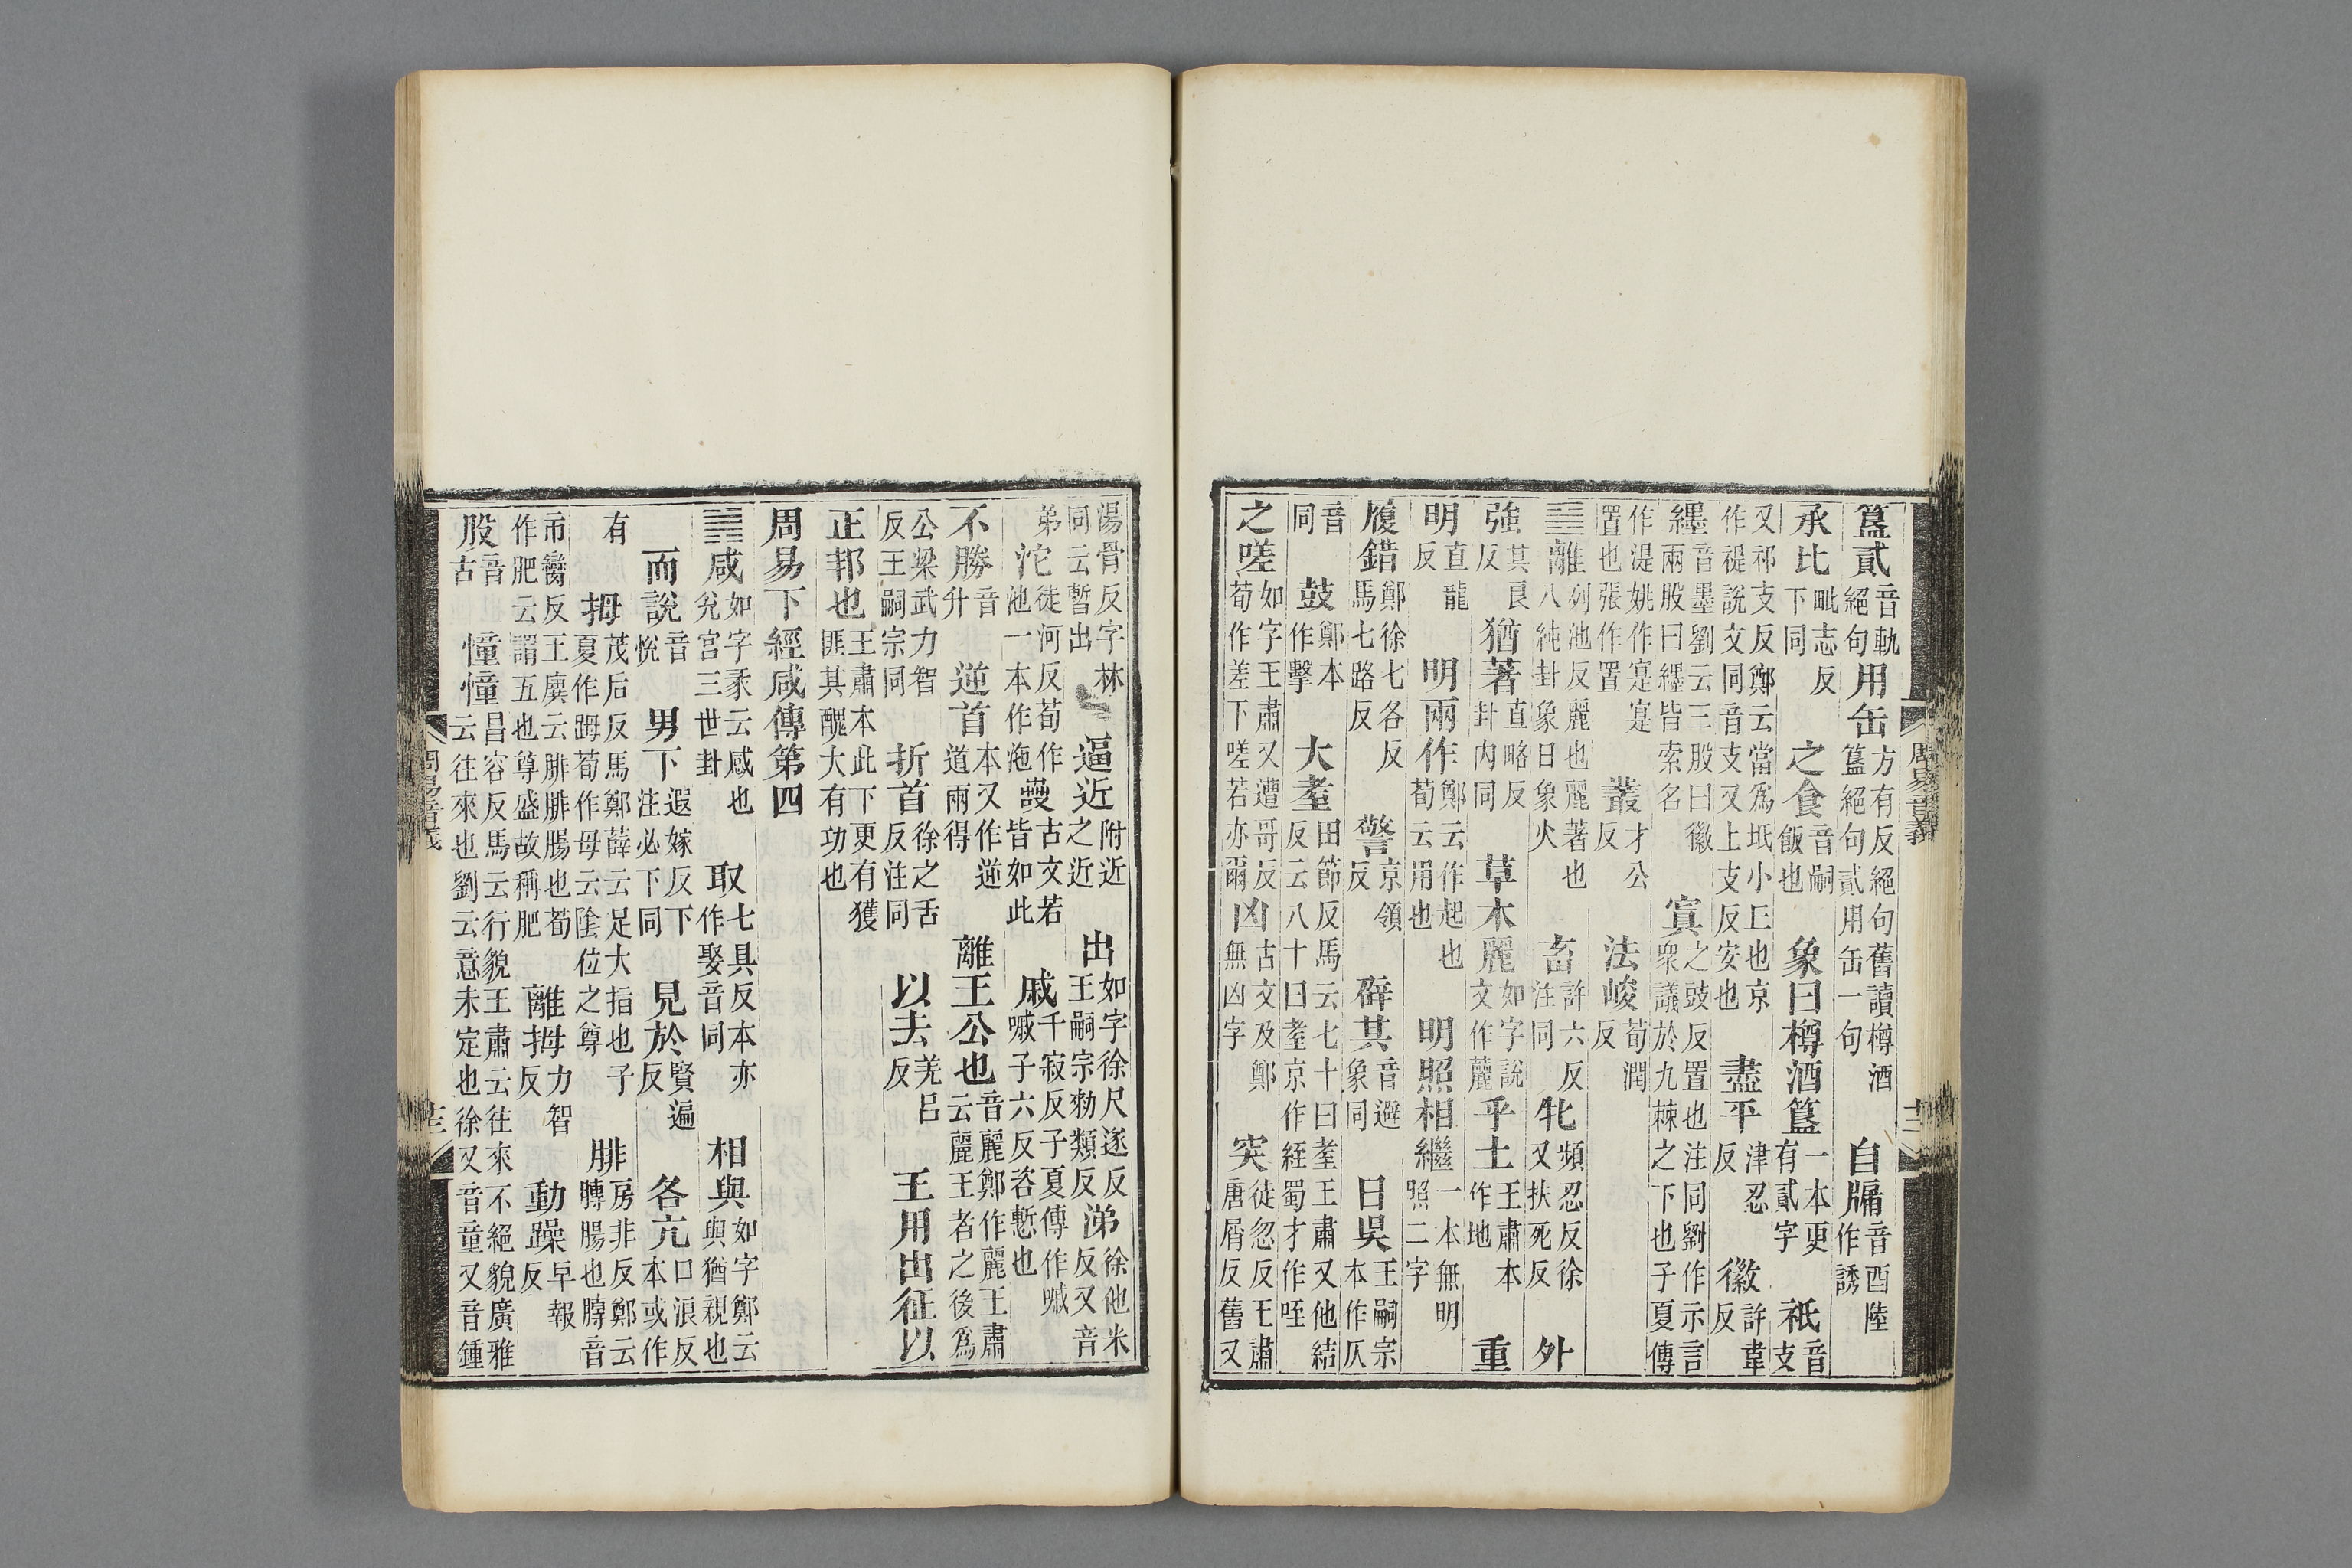 簋貳音軌絕句用缶方有反絕句舊讀樽酒簋絕句貳用缶一句自牖音酉陸作誘
承比毗志反下同之食音嗣飯也象曰樽酒簋一本更有貳字祇音支
又祁支反鄭云當爲坻小丘也京作禔說文同音支又上支反安也盡平津忍反徽許韋反
纆音墨劉云三股曰徽兩股曰纆皆索名寘之豉反置也注同劉作示言衆議於九棘之下也子夏傳
作湜姚作寔寔置也張作置叢才公反法峻荀潤反
䷝離列池反麗也麗著也八純卦象日象火畜許六反注同牝頻忍反徐又扶死反外
強其良反猶著直略反卦內同草木麗如字說文作䕻乎土王肅本作地重
明直龍反明兩作鄭云作起也荀云用也明照相繼一本無明照二字
履錯鄭徐七各反馬七路反警京領反辟其音避象同日昃王嗣宗本作仄
音同鼓鄭本作擊大耋田節反馬云七十曰耋王肅又他結反云八十曰耋京作絰蜀才作咥
之嗟如字王肅又遭哥反荀作差下嗟若亦爾凶古文及鄭無凶字突徒忽反王肅唐屑反舊又
周易音義
十二
湯骨反字林同云暫出逼近附近之近出如字徐尺遂反王嗣宗勑類反涕徐他米反又音
弟沱徒河反荀作池一本作沲嗀古文若皆如此戚千寂反子夏傳作嘁嘁子六反咨慙也
不勝音升逆首本又作逆道兩得離王公也音麗鄭作麗王肅云麗王者之後爲
公梁武力智反王嗣宗同折首徐之舌反注同以去羌呂反王用出征以
正邦也王肅本此下更有獲匪其醜大有功也
周易下經咸傳第四
䷞咸如字彖云感也兌宮三世卦取七具反本亦作娶音同相與如字鄭云與猶親也
而說音悅男下遐嫁反下注必下同見於賢遍反各亢口浪反本或作
有拇茂后反馬鄭薛云足大指也子夏作𨈭荀作母云陰位之尊腓房非反鄭云膞腸也膞音
市臠反王廙云腓腓腸也荀作肥云謂五也尊盛故稱肥離拇力智反動躁早報反
股音古憧憧昌容反馬云行貌王肅云往來不絕貌廣雅云往來也劉云意未定也徐又音童又音鍾
周易音義